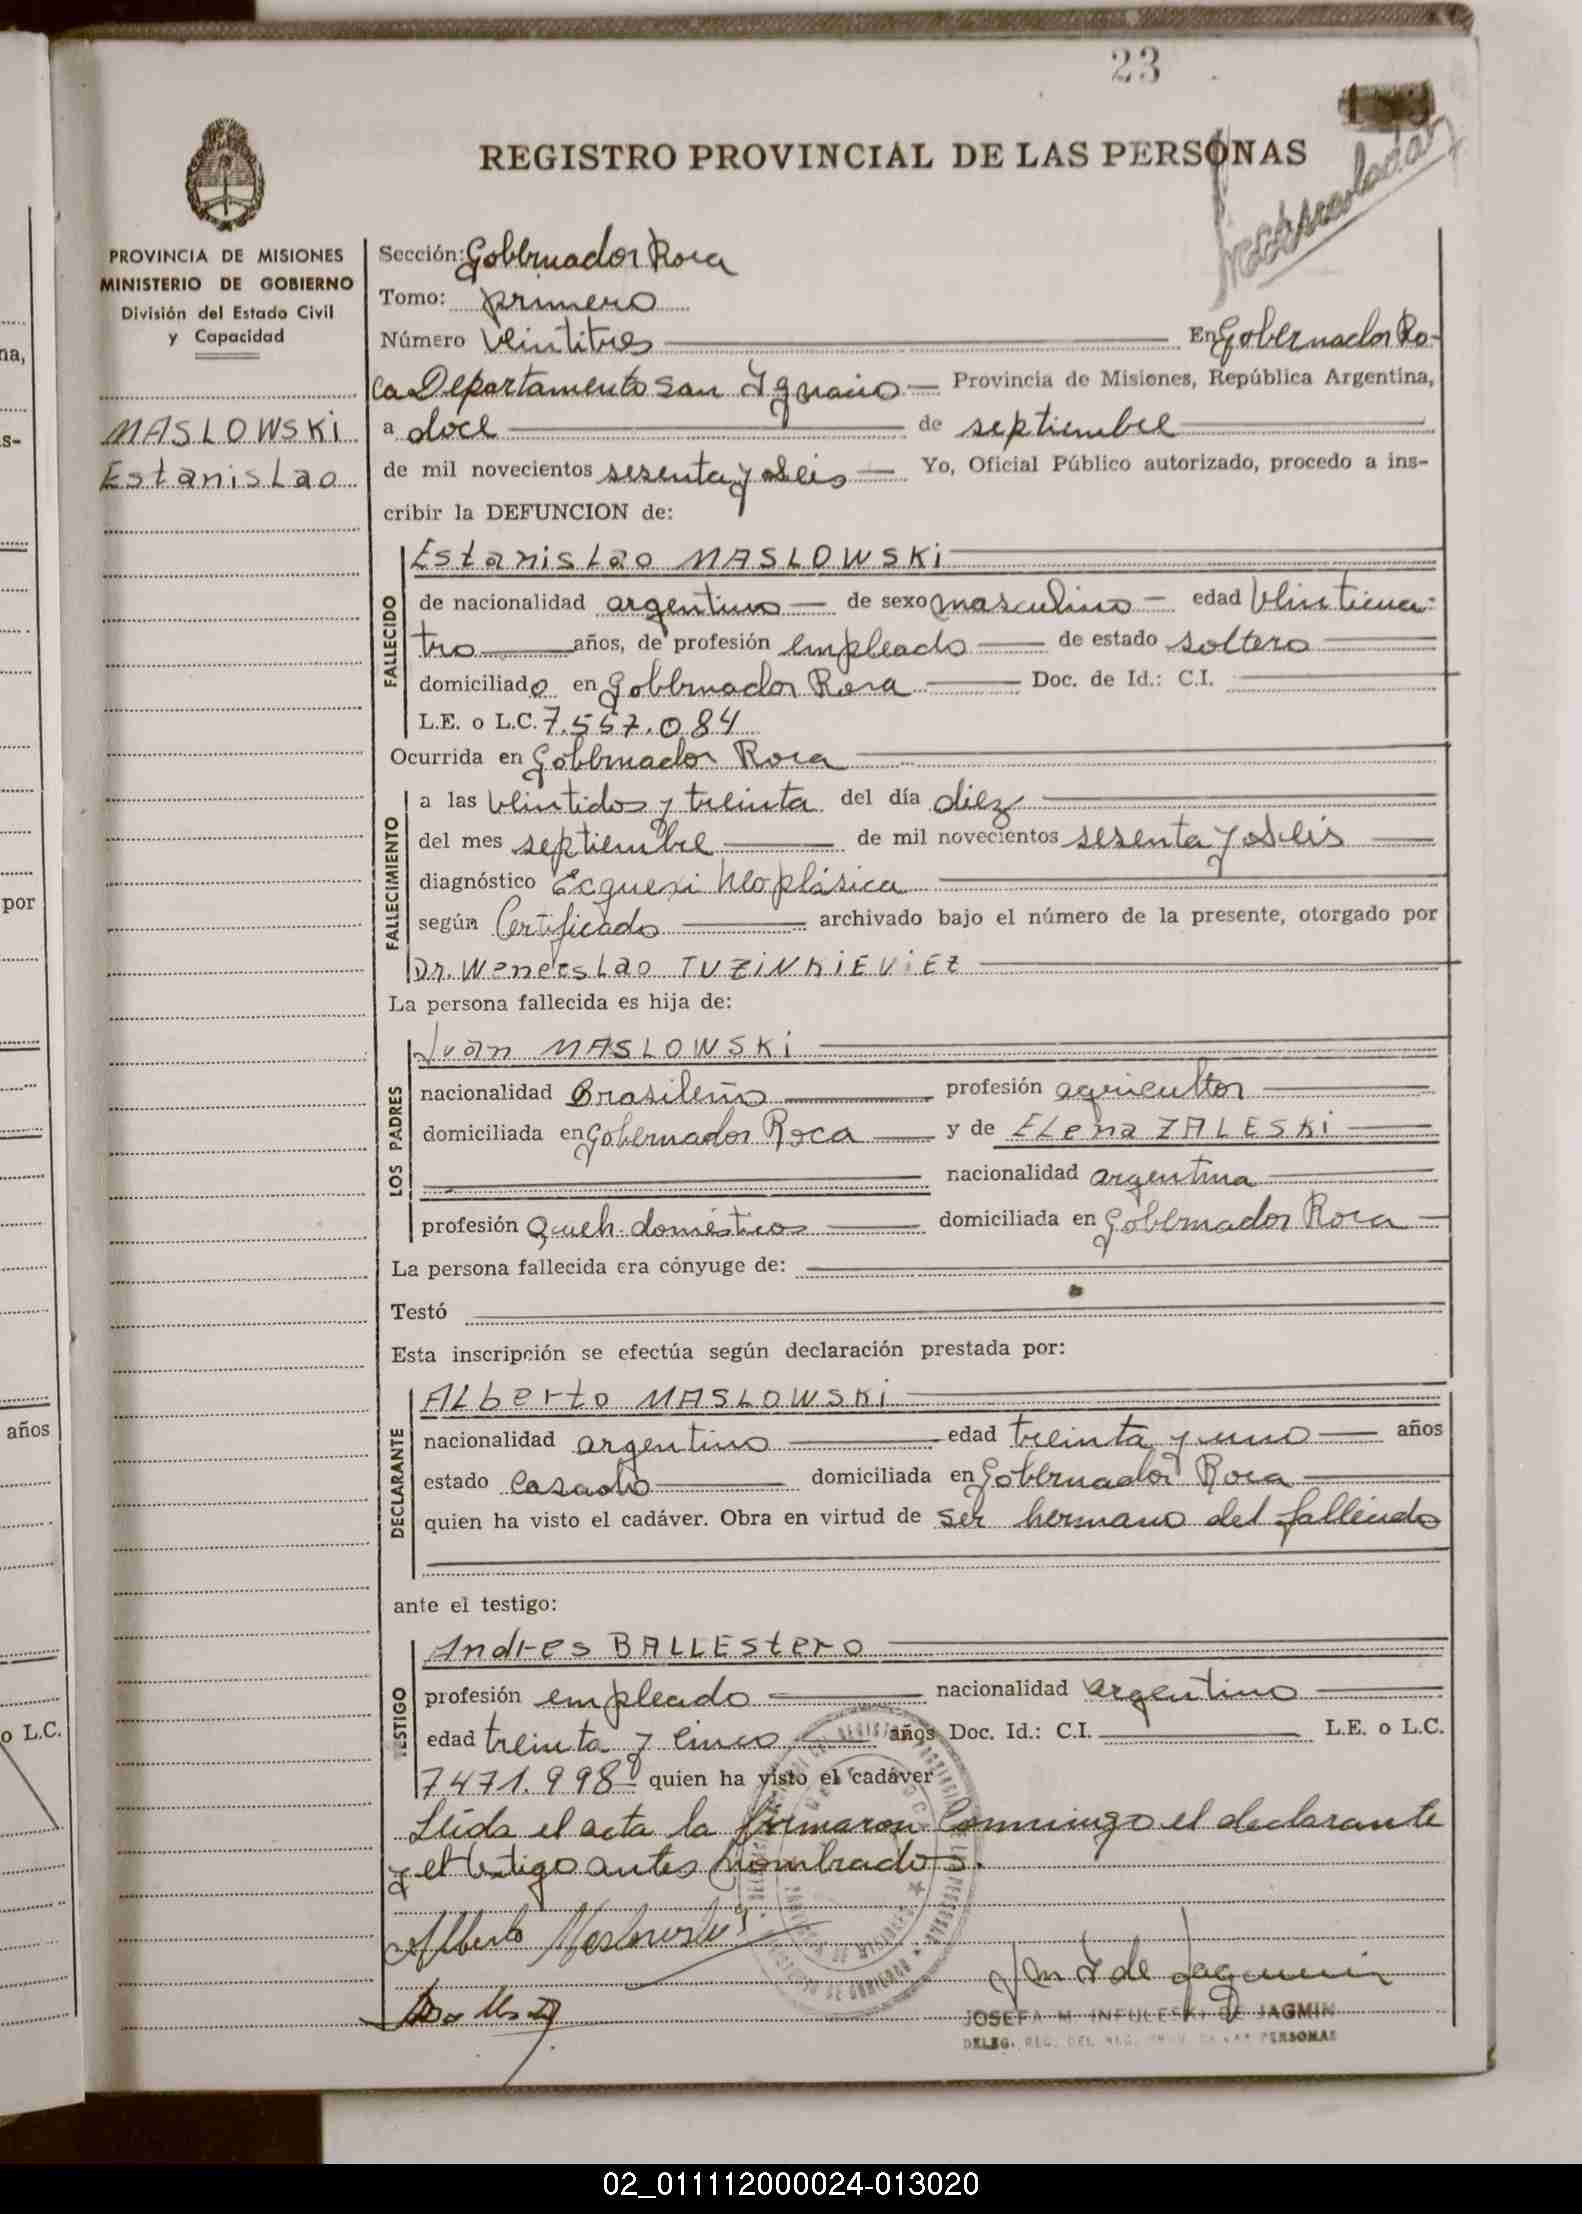 23
REGISTRO PROVINCIAL DE LAS PERSONAS
PROVINCIA DE MISIONES
MINISTERIO DE GOBIERNO
División del Estado Civil
y Capacidad
MASLOWSKi
EstanisLao
Sección: Gobernador Roca
Tomo: primero
Número veintitres En Gobernador Ro-
ca Departamento San Ignacio Provincia de Misiones, República Argentina,
a doce de septiembre
de mil novecientos sesenta y seis Yo, Oficial Público autorizado, procedo a ins-
cribir la DEFUNCION de:
FALLECIDO
EstanisLao MASLOWSKi
de nacionalidad argentino de sexo masculino edad veinticua-
tro años, de profesión empleado de estado soltero
domiciliado en Gobernador Roca Doc. de Id.: C.I.
L.E. o L.C. 7.557.084
Ocurrida en Gobernador Roca
FALLECIMIENTO
a las veintidos y treinta del día diez
del mes septiembre de mil novecientos sesenta y seis
diagnóstico Ecquexi Neoplásica
según Certificado archivado bajo el número de la presente, otorgado por
Dr. WencesLao TUZiNKiEViEZ
La persona fallecida es hija de:
LOS PADRES
Juan MASLOWSKi
nacionalidad Brasileño profesión agricultor
domiciliada en Gobernador Roca y de ELena ZALESKi
nacionalidad argentina
profesión Queh. domésticos domiciliada en Gobernador Roca
La persona fallecida era cónyuge de:
Testó
Esta inscripción se efectúa según declaración prestada por:
DECLARANTE
ALberto MASLOWSKi
nacionalidad argentino edad treinta y uno años
estado casado domiciliada en Gobernador Roca
quien ha visto el cadáver. Obra en virtud de ser hermano del fallecido
ante el testigo:
TESTIGO
Andres BALLEStero
profesión empleado nacionalidad argentino
edad treinta y cinco años Doc. Id.: C.I. L.E. o L.C.
7471.998 quien ha visto el cadáver
Leida el acta la firmaron conmigo el declarante
y el testigo antes nombrados.
Alberto Maslowski
JOSEFA M. INFULESKI DE JAGMIN
DELEG. REG. DEL REG. PROV. DE LAS PERSONAS
na,
s-
por
años
o L.C.
02_011112000024-013020